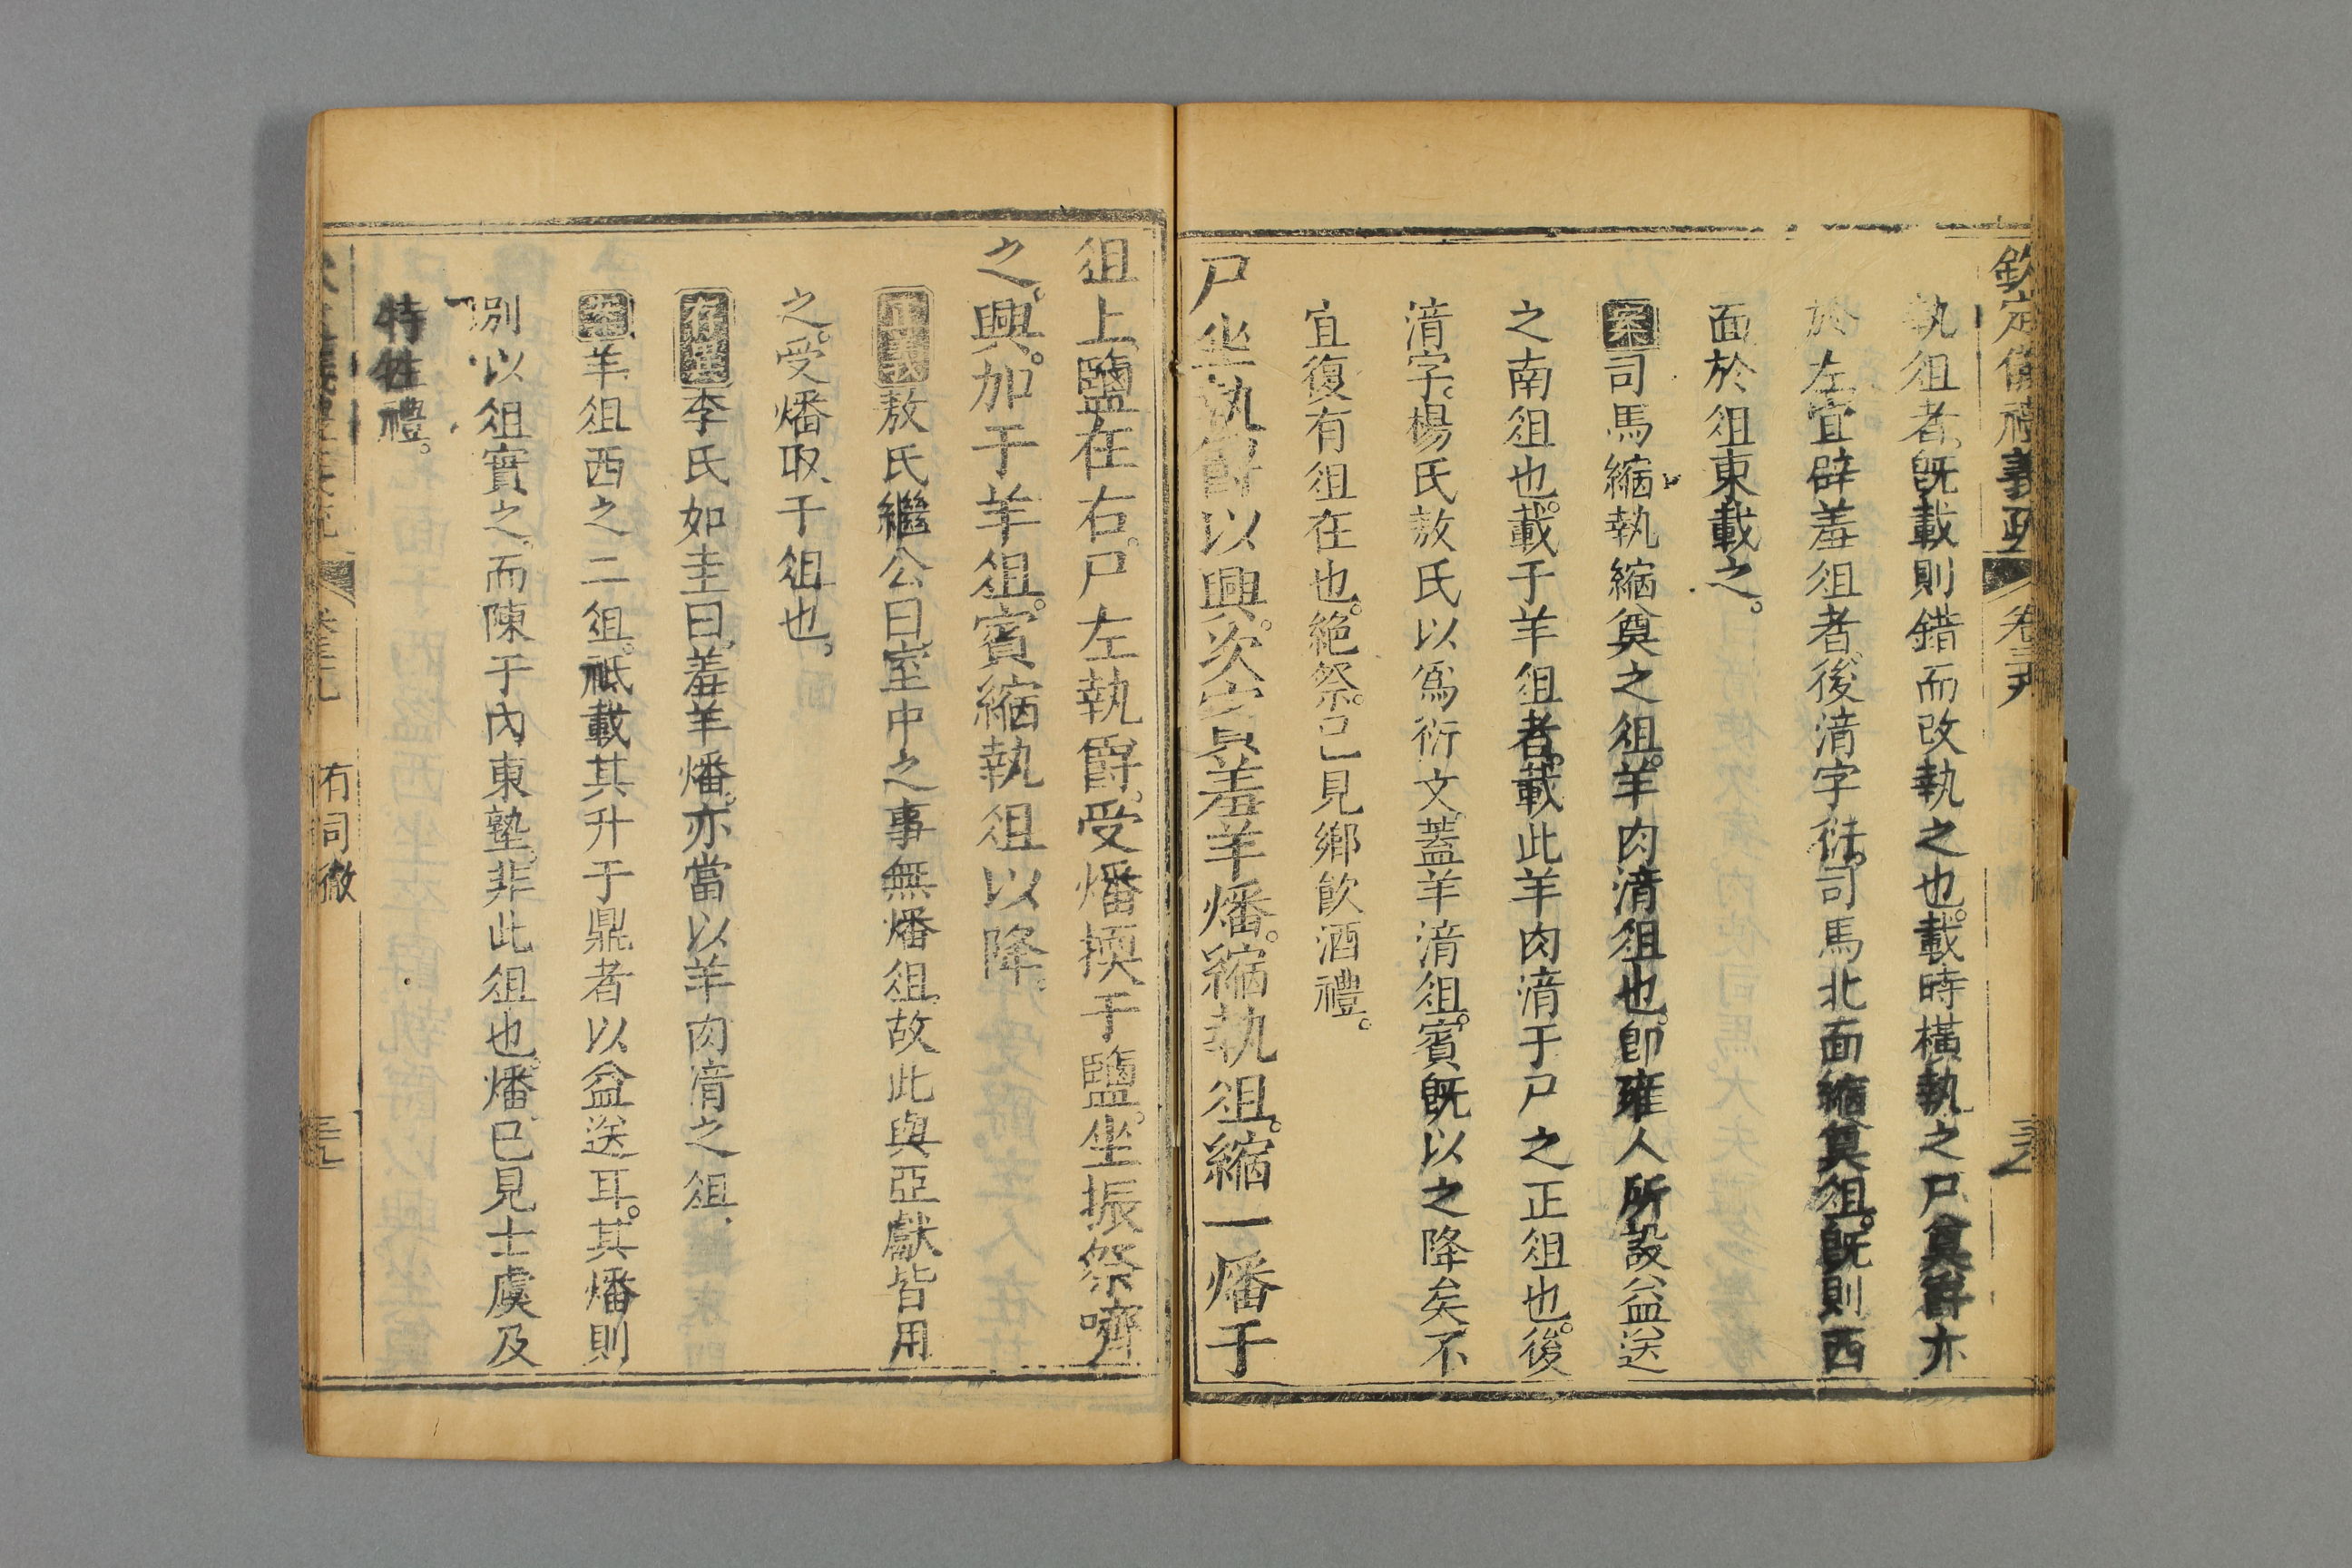 欽定儀禮義疏 卷三十九
執俎者既載則錯而改執之也載時橫執之尸奠爵亦
於左宜辟羞俎者後湇字衍司馬北面縮奠俎既則西
面於俎東載之
案司馬縮執縮奠之俎羊肉湇俎也卽雍人所設益送
之南俎也載于羊俎者載此羊肉湇于尸之正俎也後
湇字楊氏敖氏以爲衍文蓋羊湇俎賓旣以之降矣不
宜復有俎在也絕祭已見鄉飮酒禮
尸坐執爵以興次賓羞羊燔縮執俎縮一燔于
俎上鹽在右尸左執爵受燔擩于鹽坐振祭嚌
之興加于羊俎賓縮執俎以降
正義敖氏繼公曰室中之事無燔俎故此與亞獻皆用
之受燔取于俎也
存疑李氏如圭曰羞羊燔亦當以羊肉湇之俎
案羊俎西之二俎祗載其升于鼎者以益送耳其燔則
別以俎實之而陳于內東塾非此俎也燔已見士虞及
特牲禮
有司徹